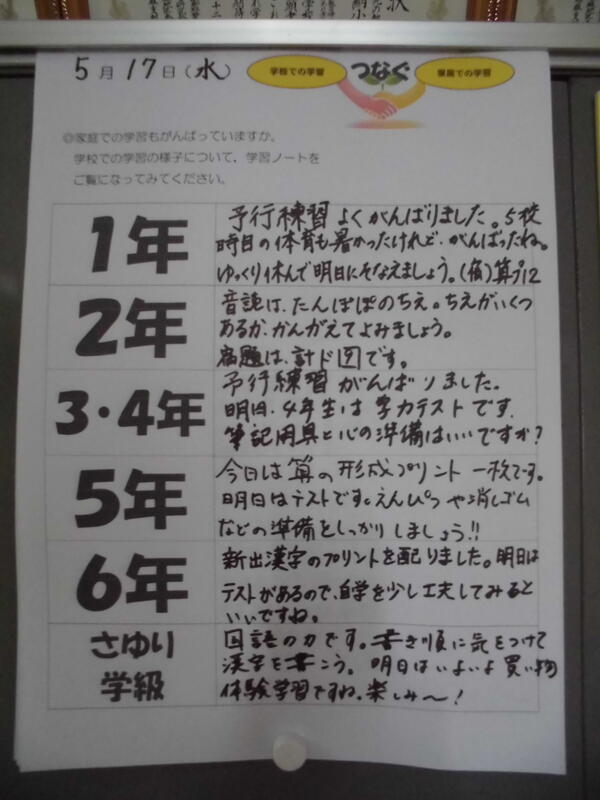 5月17日(水)
学校での学習 つなぐ 家庭での学習
◎家庭での学習もがんばっていますか。
学校での学習の様子について，学習ノートを
ご覧になってみてください。
1年
予行練習よくがんばりました。5校
時目の体育も暑かったけれど、がんばったね。
ゆっくり休んで明日にそなえましょう。(宿)算プ12
2年
音読は、たんぽぽのちえ。ちえがいくつ
あるか、かんがえてよみましょう。
宿題は、計ド図です。
3・4年
予行練習がんばりました。
明日、4年生は学力テストです。
筆記用具と心の準備はいいですか?
5年
今日は算の形成プリント一枚です。
明日はテストです。えんぴつや消しゴム
などの準備をしっかりしましょう!!
6年
新出漢字のプリントを配りました。明日は
テストがあるので、自学を少し工夫してみると
いいですね。
さゆり
学級
国語の力です。書き順に気をつけて
漢字を書こう。明日はいよいよ買い物
体験学習ですね。楽しみ〜!